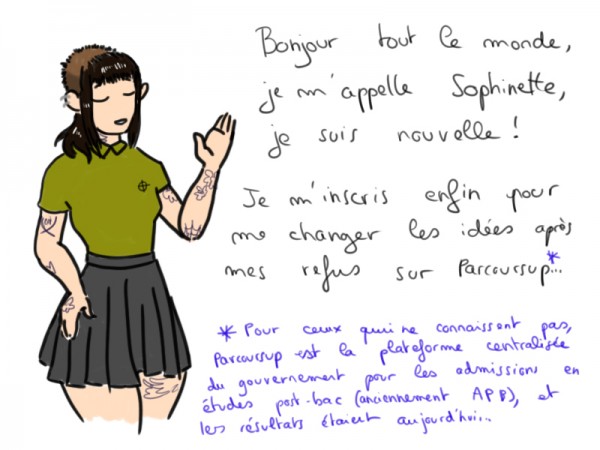 Bonjour tout le monde,
je m'appelle Sophinette,
je suis nouvelle !
Je m'inscris enfin pour
me changer les idées après
mes refus sur Parcoursup*...
* Pour ceux qui ne connaissent pas,
Parcoursup est la plateforme centralisée
du gouvernement pour les admissions en
études post-bac (anciennement APB), et
les résultats étaient aujourd'hui...